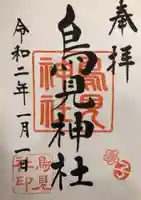 奉拝
鳥見神社
令和二年一月一日
鳥見神社
鳥見
社印